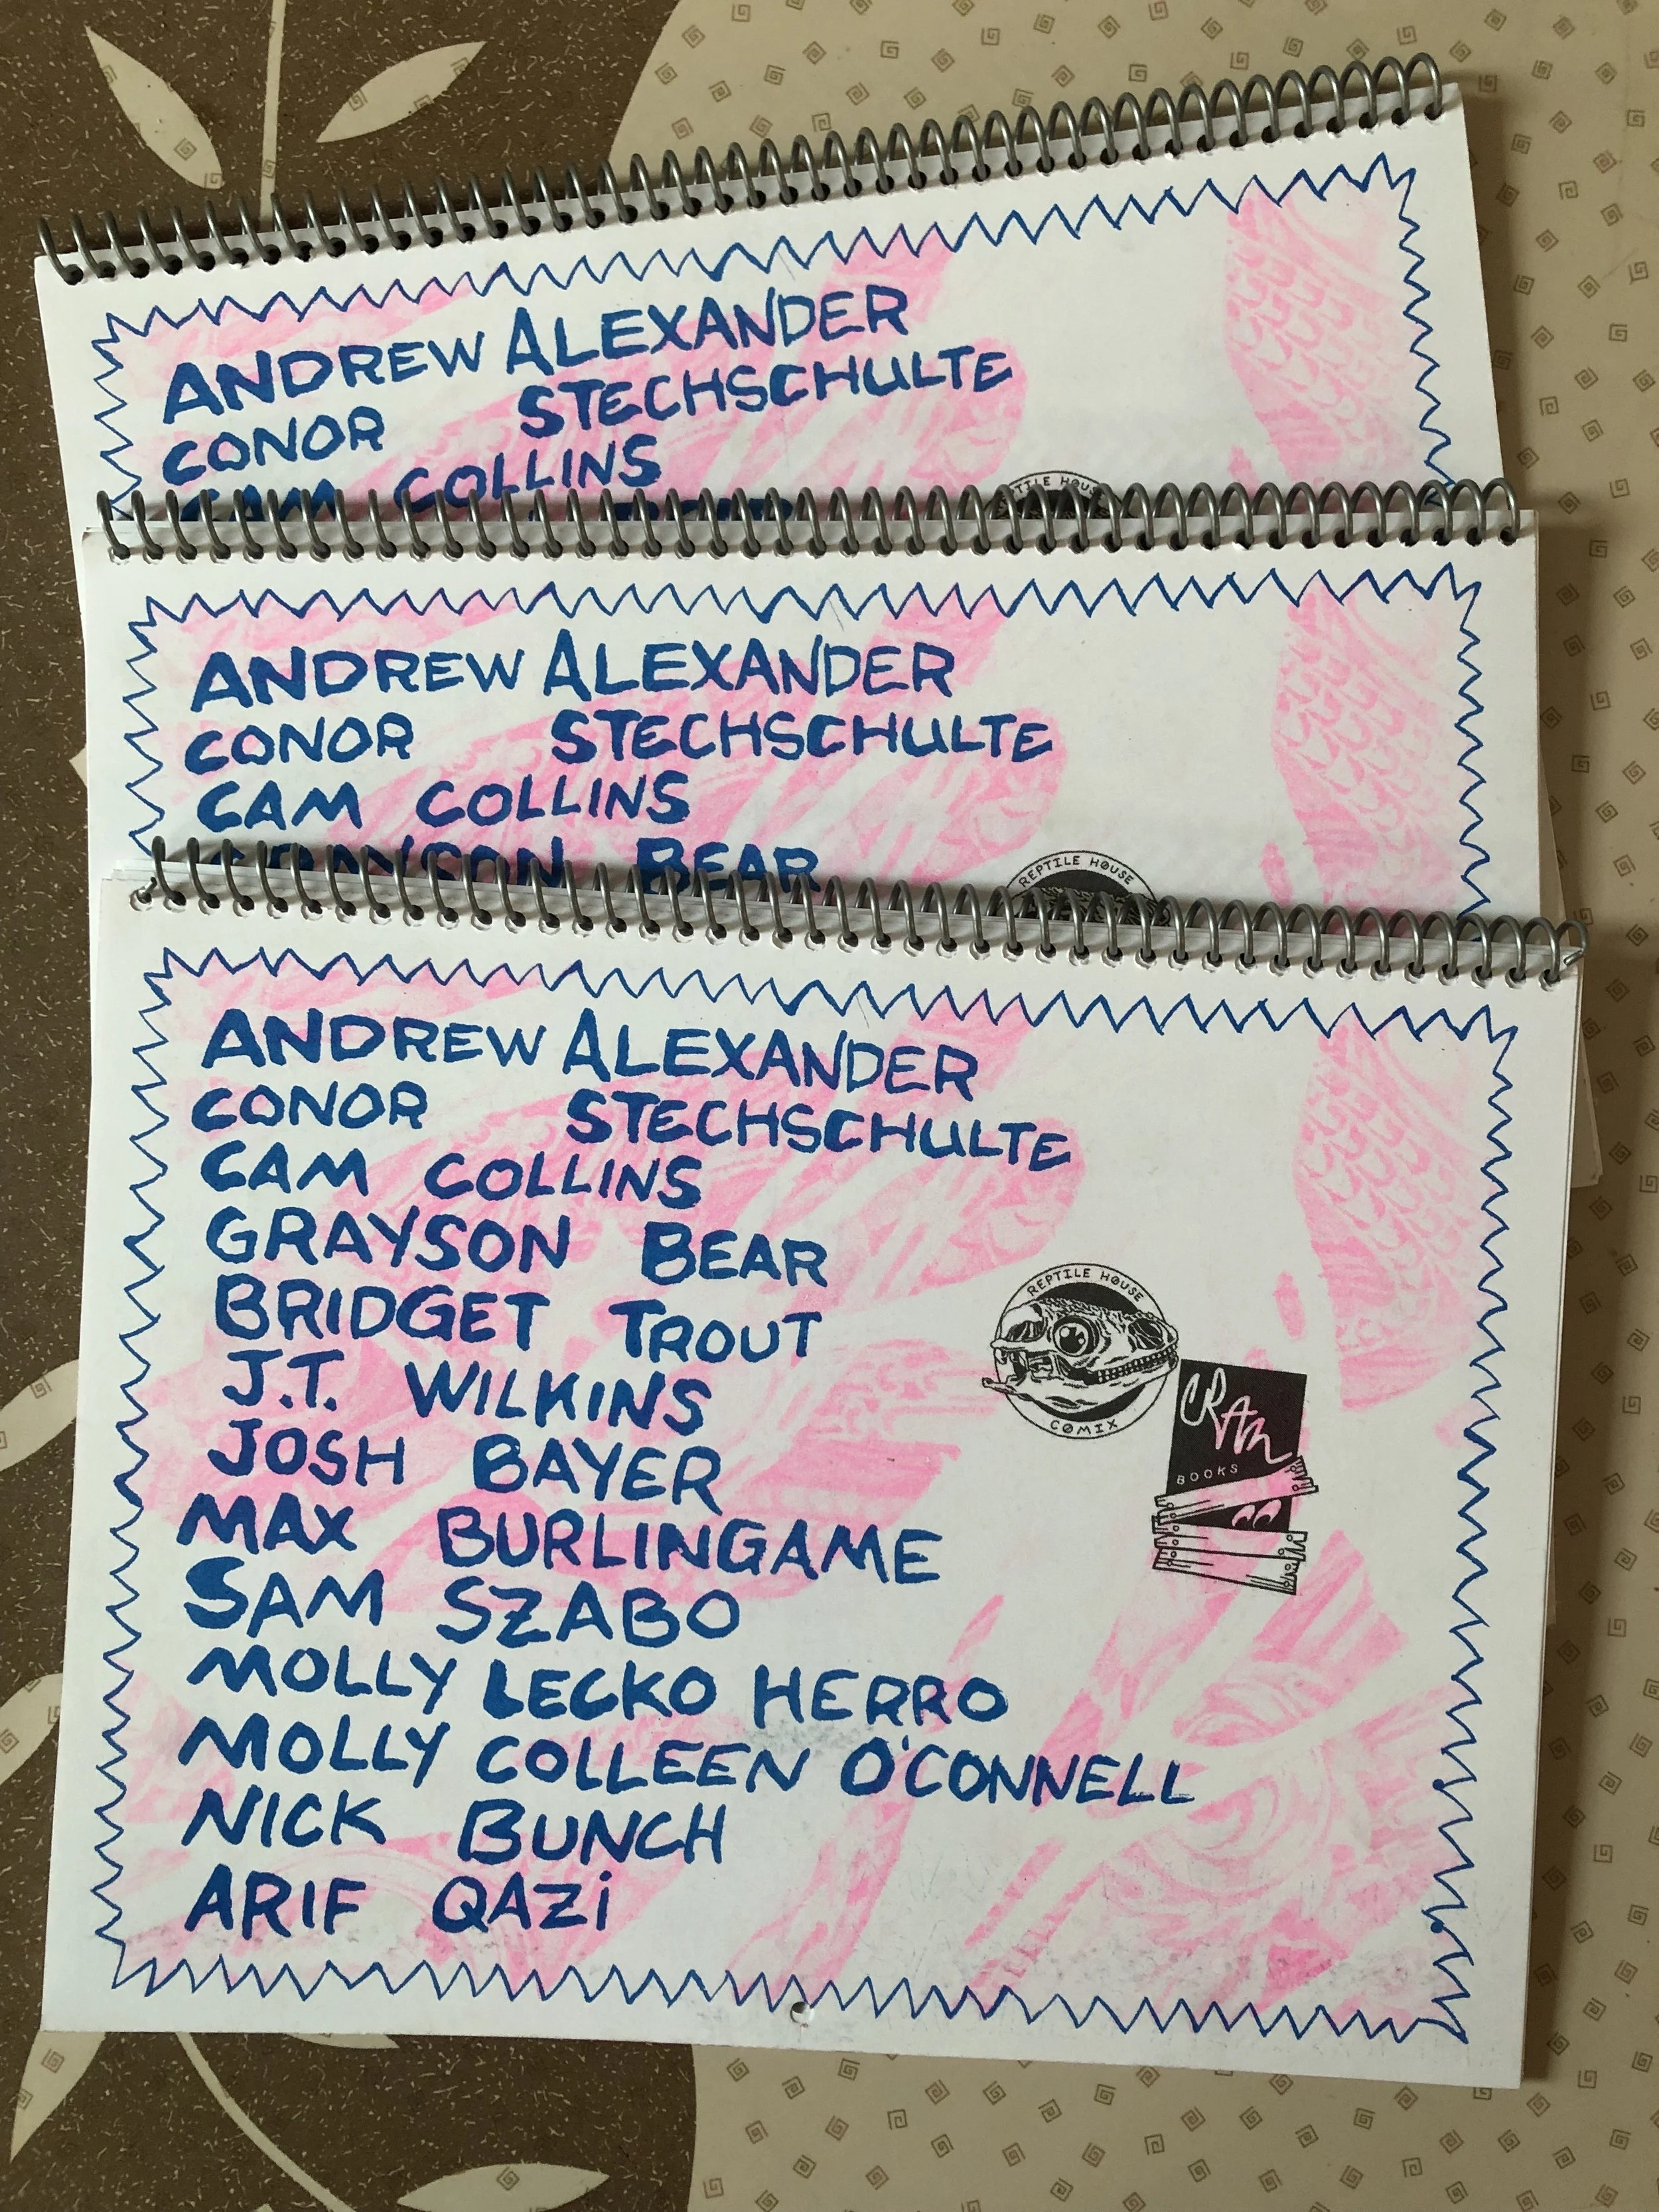 ANDREW ALEXANDER
CONOR STECHSCHULTE
CAM COLLINS
REPTILE HOUSE
ANDREW ALEXANDER
CONOR STECHSCHULTE
CAM COLLINS
GRAYSON BEAR
REPTILE HOUSE
ANDREW ALEXANDER
CONOR STECHSCHULTE
CAM COLLINS
GRAYSON BEAR
BRIDGET TROUT
J.T. WILKINS
JOSH BAYER
MAX BURLINGAME
SAM SZABO
MOLLY LECKO HERRO
MOLLY COLLEEN O'CONNELL
NICK BUNCH
ARIF QAZi
REPTILE HOUSE
COMIX
CRAM
BOOKS